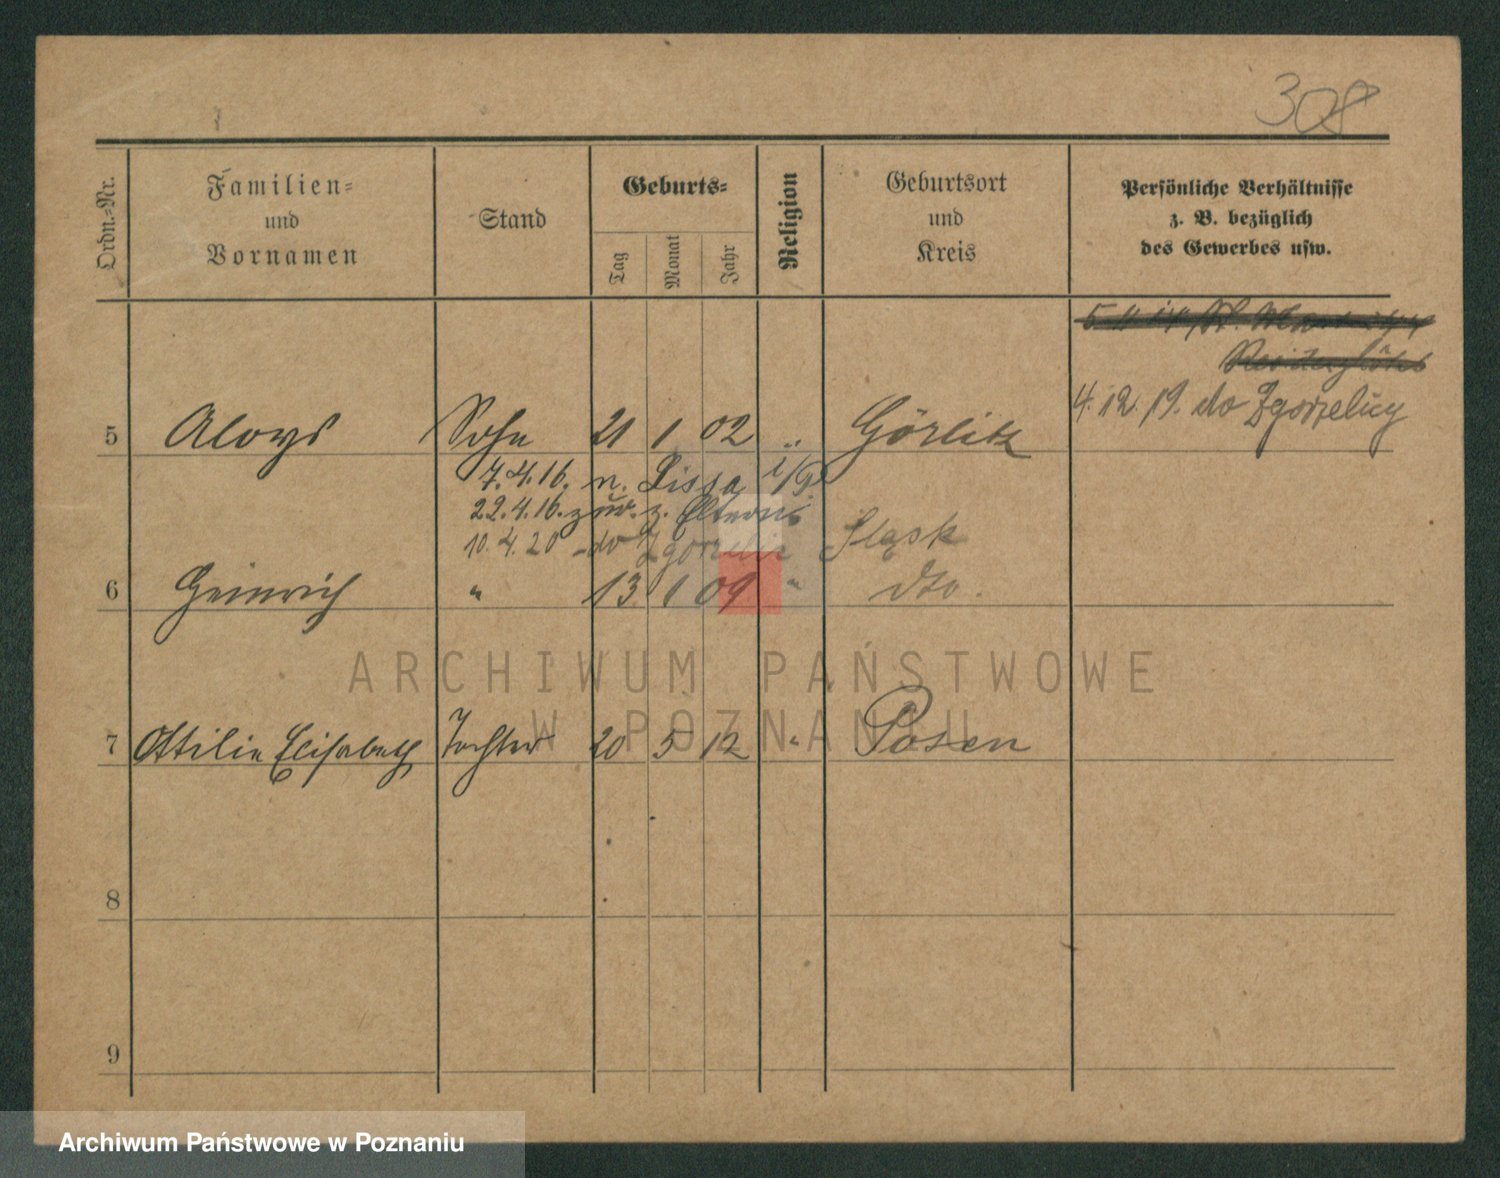 308
Ordn.-Nr.
Familien-
und
Vornamen
Stand
Geburts-
Tag
Monat
Jahr
Religion
Geburtsort
und
Kreis
Persönliche Verhältnisse
z. B. bezüglich
des Gewerbes usw.
4. 12. 19. do Zgorzelicy
5 Aloys Sohn 21 1 02 " Görlitz
7.4.16. n. Lissa i/P
22.4.16. zur. z. Eltern
10.4.20 - do Zgorzelic Śląsk
6 Heinrich " 13 1 09 " dto.
ARCHIWUM PAŃSTWOWE
W POZNANIU
7 Ottilie Elisabeth Tochter 20 5 12 " Posen
8
9
Archiwum Państwowe w Poznaniu